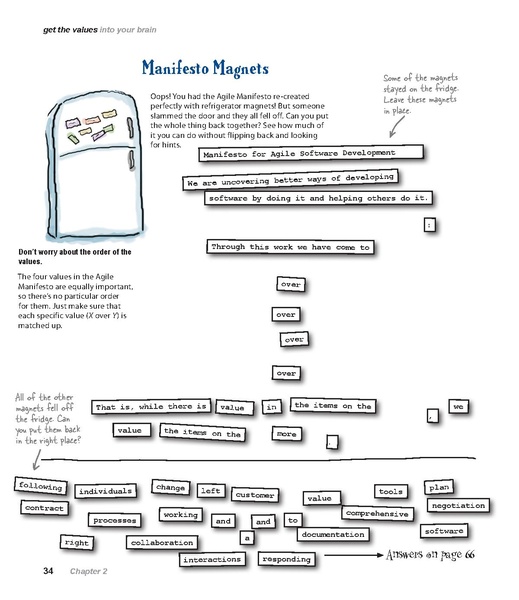 get the values into your brain
Manifesto Magnets
Oops! You had the Agile Manifesto re-created
perfectly with refrigerator magnets! But someone
slammed the door and they all fell off. Can you put
the whole thing back together? See how much of
it you can do without flipping back and looking
for hints.
Some of the magnets
stayed on the fridge.
Leave these magnets
in place.
Manifesto for Agile Software Development
We are uncovering better ways of developing
software by doing it and helping others do it.
:
Through this work we have come to
Don't worry about the order of the
values.
The four values in the Agile
Manifesto are equally important,
so there's no particular order
for them. Just make sure that
each specific value (X over Y) is
matched up.
over
over
over
over
All of the other
magnets fell off
the fridge. Can
you put them back
in the right place?
That is, while there is value in the items on the , we
value the items on the more .
following individuals change left customer value tools plan
contract processes working and and to comprehensive negotiation
right collaboration a documentation software
interactions responding
Answers on page 66
34 Chapter 2